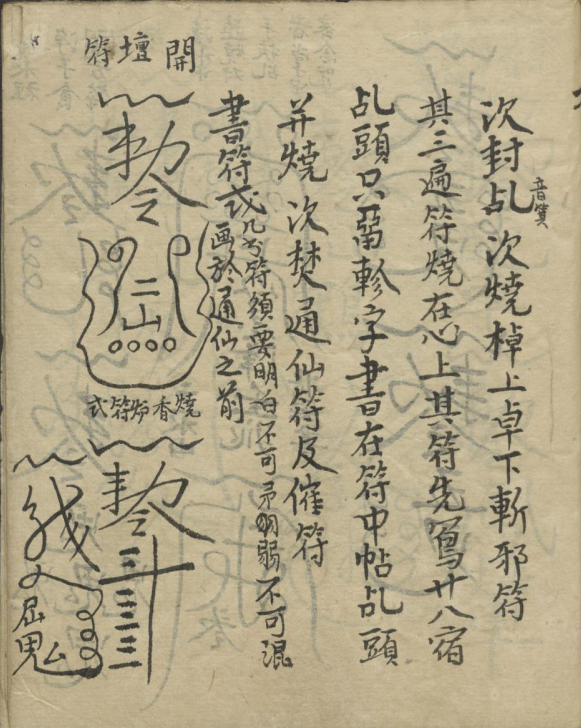 次封乩音箕次燒棹上卓下斬邪符
其三遍符燒在心上其符先寫廿八宿
乩頭只畱軫字書在符中帖乩頭
并燒次焚通仙符及催符
書符或画於通仙之前
几書符須要明白不可弱不可混
開壇符
敕令
山
燒香炉符式
敕令
鬼